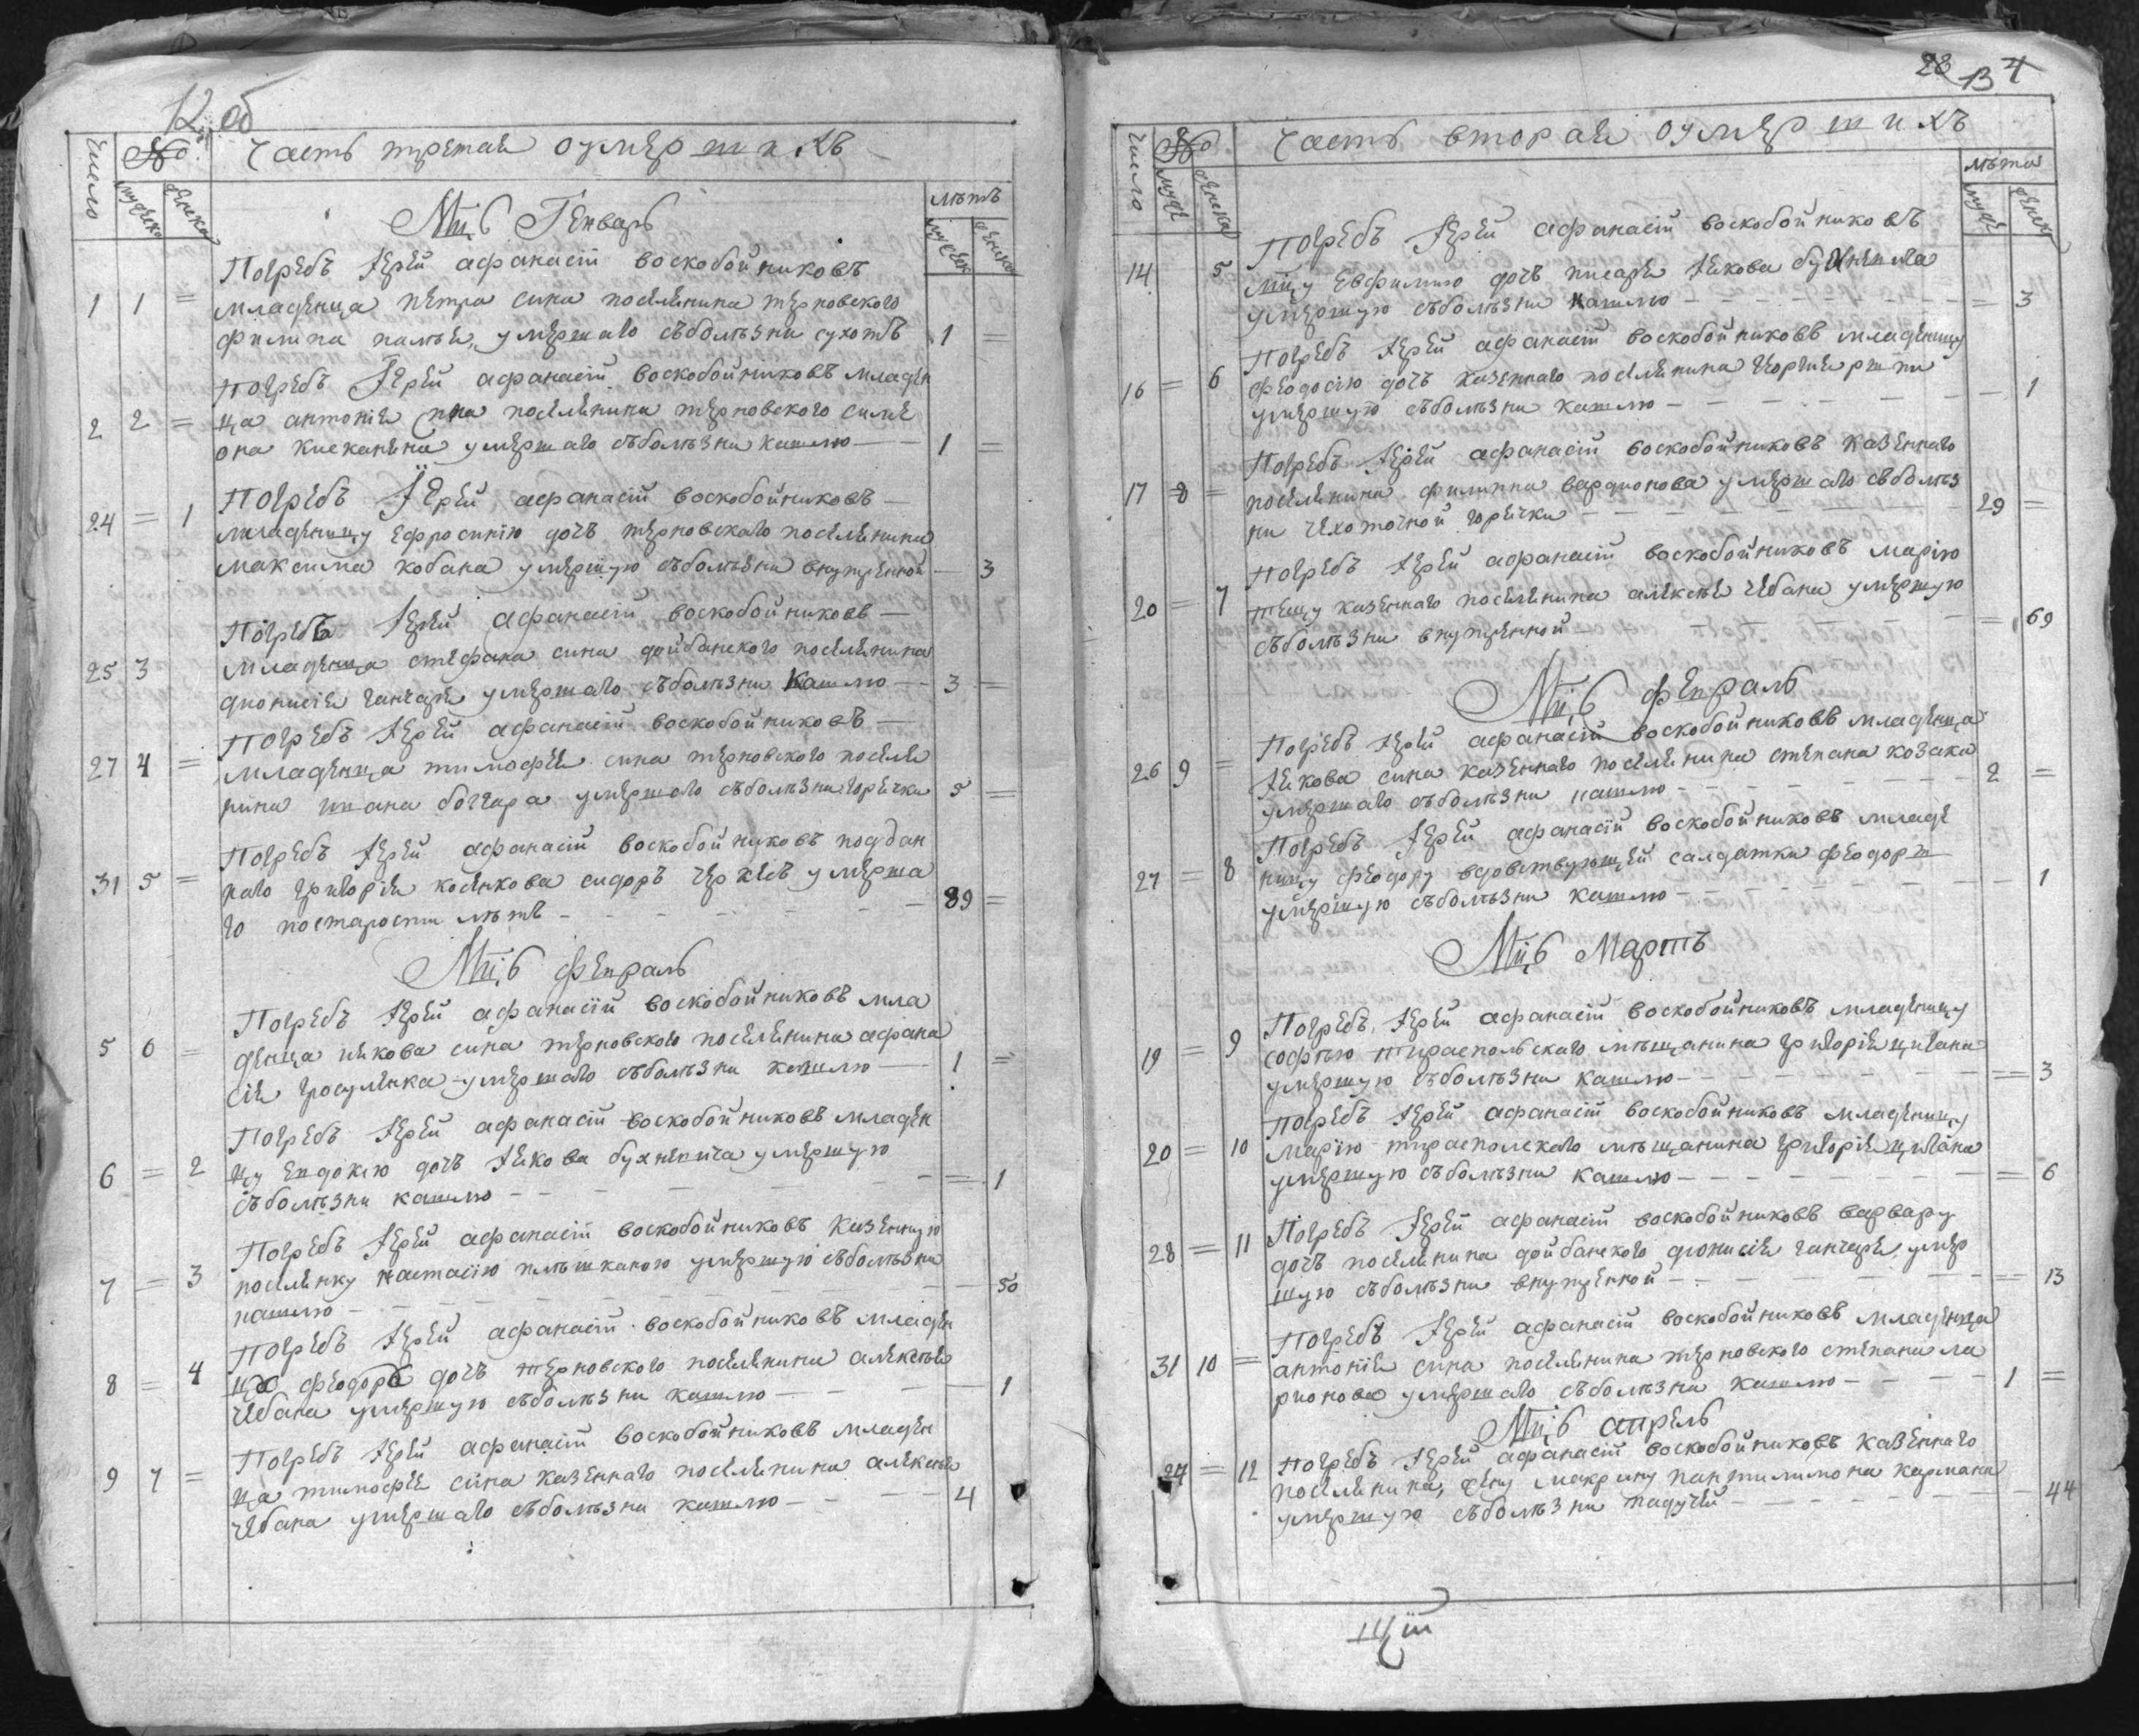 12 об
Число № Часть третая оумершихъ
мужеска женска лѣтъ мужеск женска
Мц҃ъ Генварь
Погребъ Іерей афанасій воскобойниковъ
1 1 = младенца петра сина поселянина терновского
филипа умершаго съболѣзни сухотъ 1 =
Погребъ Іерей афанасій воскобойниковъ младен
2 2 = ца антонія поселянина терновского симе
она умершаго съболѣзни кашлю — 1 =
Погребъ Іерей афанасій воскобойниковъ —
24 = 1 младеницу Ефросинію дочь терновскаго поселянина
максима кобана умершую съболѣзни внутренной — 3
Погребъ Іерей афанасій воскобойниковъ —
25 3 младенца стефана сина дойбанского поселянина
дионисія ганчаря умершаго съболѣзни Кашлю — 3 =
Погребъ Іерей афанасій воскобойниковъ —
27 4 = младенца тимофея сина терновского поселя
нина ивана умершаго съболѣзни горячки 5 =
Погребъ Іерей афанасій воскобойниковъ поддан
31 5 = наго григорія сидоръ умерша
го постарости лѣтъ — 89 =
Мц҃ъ февраль
Погребъ Іерей афанасій воскобойниковъ мла
5 6 = денца иякова сина терновского поселянина афана
сія умершаго съболѣзни кашлю — 1 =
Погребъ Іерей афанасій воскобойниковъ младен
6 = 2 цу Евдокію дочь Іякова бухневича умершую
съболѣзни кашлю — = 1
Погребъ Іерей афанасій воскобойниковъ Казенную
7 = 3 поселянку настасію умершую съболѣзни
кашлю — 50
Погребъ Іерей афанасій воскобойниковъ младен
8 = 4 цу феодору дочь терновского поселянина алексѣя
чебана умершую съболѣзни кашлю — 1
Погребъ Іерей афанасій воскобойниковъ младен
9 7 = ца тимофея сина казеннаго поселянина алексѣя
чебана умершаго съболѣзни кашлю — 4
28 13 4
Число № Часть вторая оумершихъ
муже женска лѣта муже женск
Погребъ Іерей афанасій воскобойниковъ
14 5 Евфимию дочь писаря Іякова бухневича
умершую съболѣзни кашлю — = 3
Погребъ Іерей афанасій воскобойниковъ младеницу
16 = 6 феодосію дочь казеннаго поселянина георгия
умершую съболѣзни кашлю — 1
Погребъ Іерей афанасій воскобойниковъ Казеннаго
17 8 = поселянина филиппа вардионова умершаго съболѣз
ни чехоточной горячки — 29 =
Погребъ Іерей афанасій воскобойниковъ марію
20 = 7 тещу казеннаго поселянина алексѣя чебана умершую
съболѣзни внутренной — = 69
Мц҃ъ февраль
Погребъ Іерей афанасій воскобойниковъ младенца
26 9 = Іякова сина казеннаго поселянина степана козака
умершаго съболѣзни кашлю — 2 =
Погребъ Іерей афанасій воскобойниковъ младе
27 = 8 ницу феодору вдовствующей салдатки феодори
умершую съболѣзни кашлю — 1
Мц҃ъ Мартъ
Погребъ Іерей афанасій воскобойниковъ младеницу
19 = 9 софѣю тираспольскаго мѣщанина григорія цигана
умершую съболѣзни кашлю — = 3
Погребъ Іерей афанасій воскобойниковъ младеницу
20 = 10 марію тирасполскаго мѣщанина григорія цигана
умершую съболѣзни кашлю — = 6
Погребъ Іерей афанасій воскобойниковъ варвару
28 = 11 дочь поселянина дойбанского дионисія ганчаря умер
шую съболѣзни внутренной — = 13
Погребъ Іерей афанасій воскобойниковъ младенца
31 10 = антонія сина поселянина терновского степана ла
рионова умершаго съболѣзни кашлю — 1 =
Мц҃ъ апрель
Погребъ Іерей афанасій воскобойниковъ казеннаго
24 = 12 поселянина, жену макрину пантилимона кармана
умершую съболѣзни падучей — 44